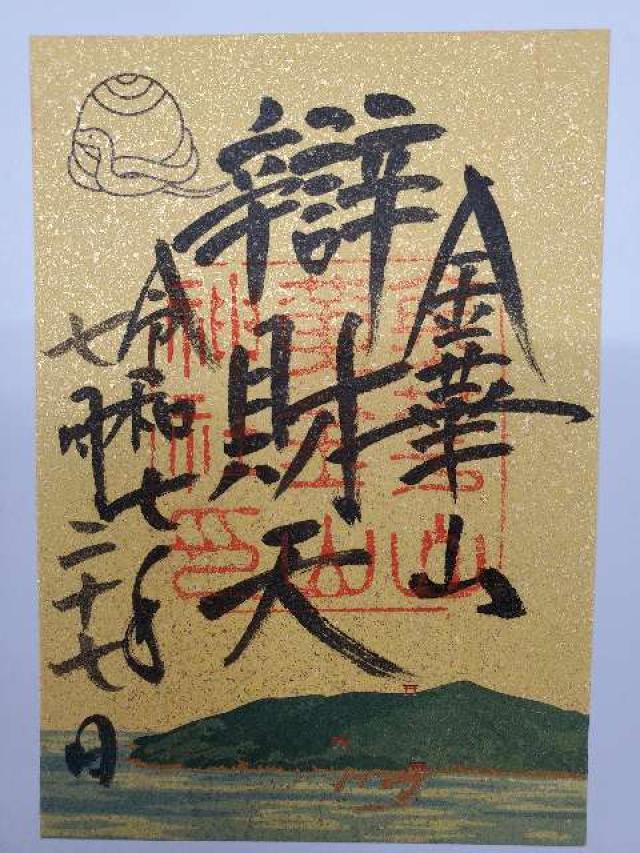 金華山
辯財天
令和七年
七月二十七日